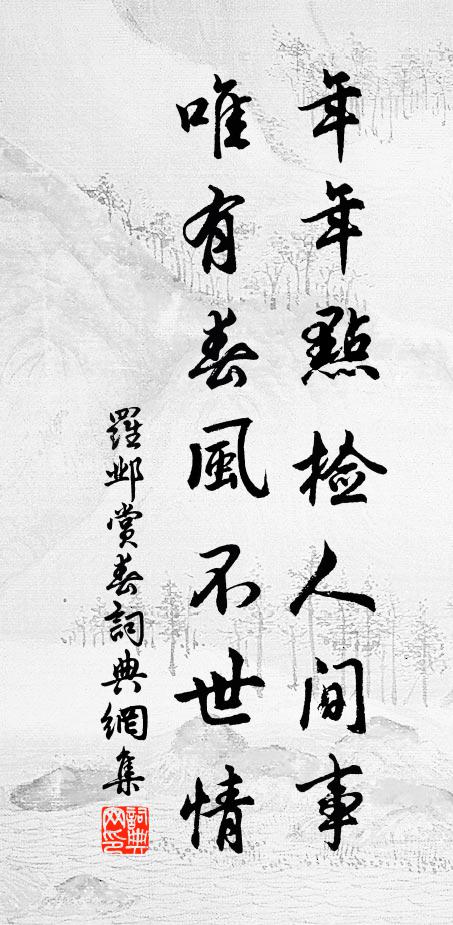 年年點檢人間事
唯有春風不世情
羅鄴賞春詞典網集
詞典网印